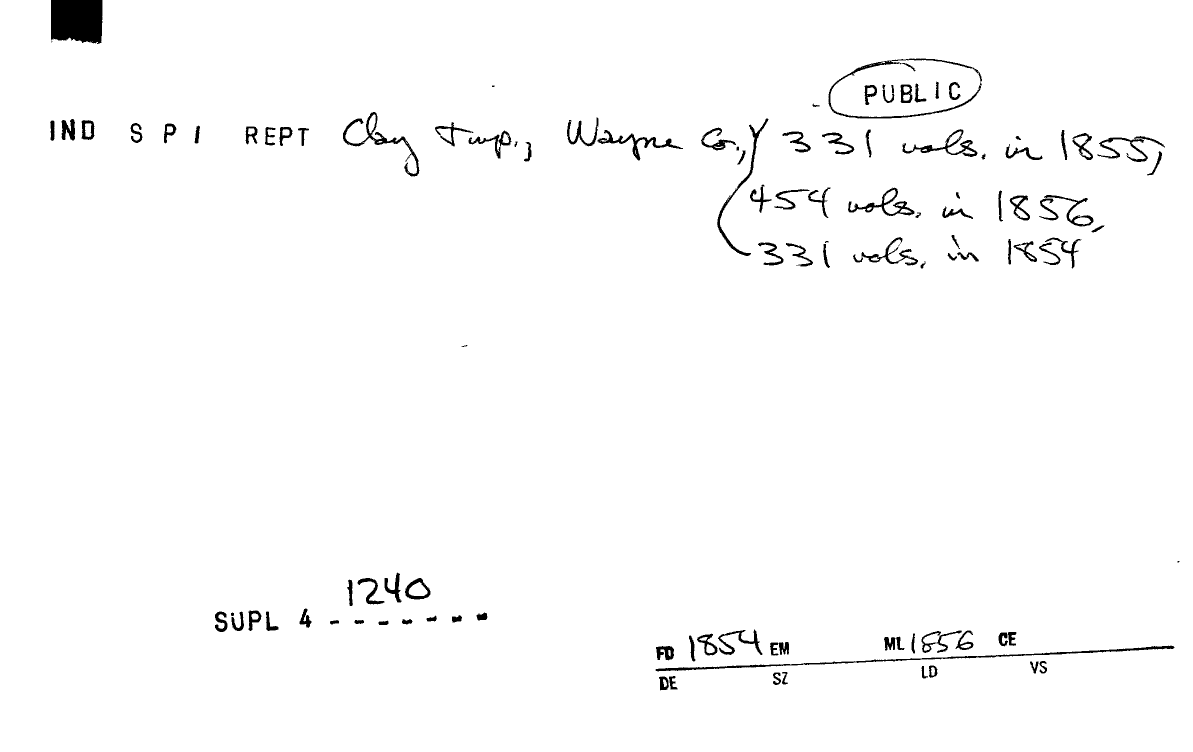 PUBLIC
IND S P I REPT Clay Twp., Wayne Co., 331 vols. in 1855,
454 vols. in 1856,
331 vols. in 1854
1240
SUPL 4 - - - - - - -
FD 1854 EM ML 1856 CE
DE SZ LD VS